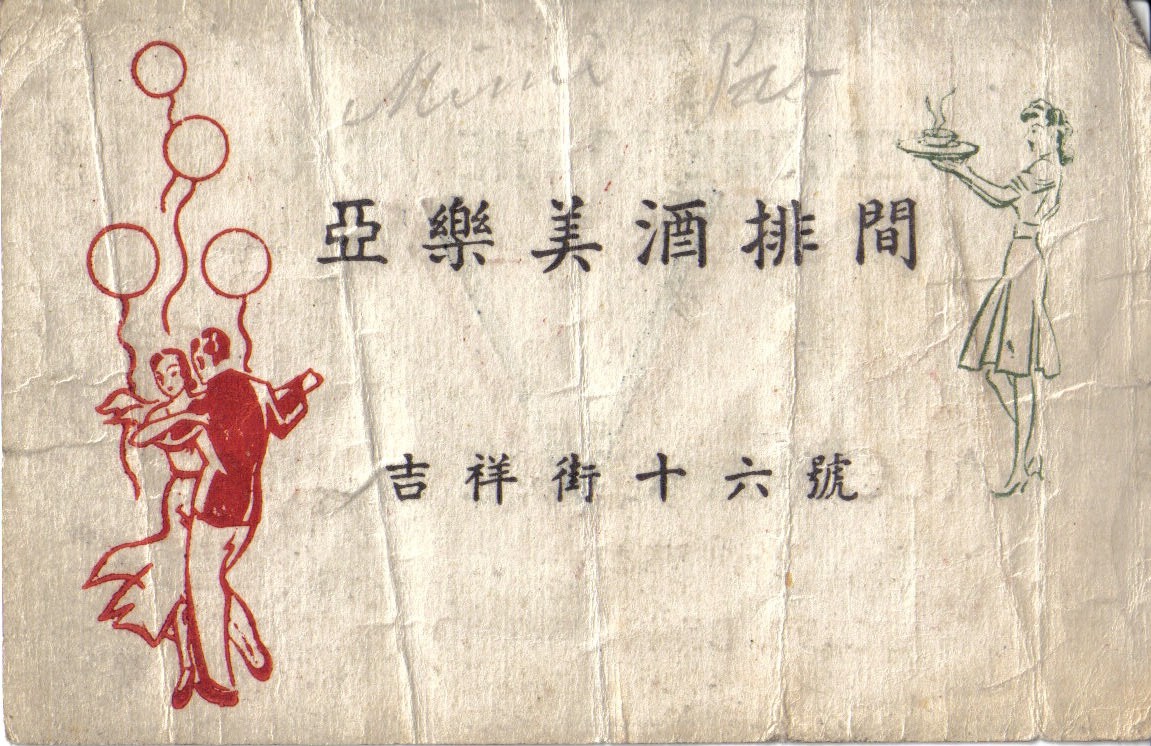 亞樂美酒排間
吉祥街十六號